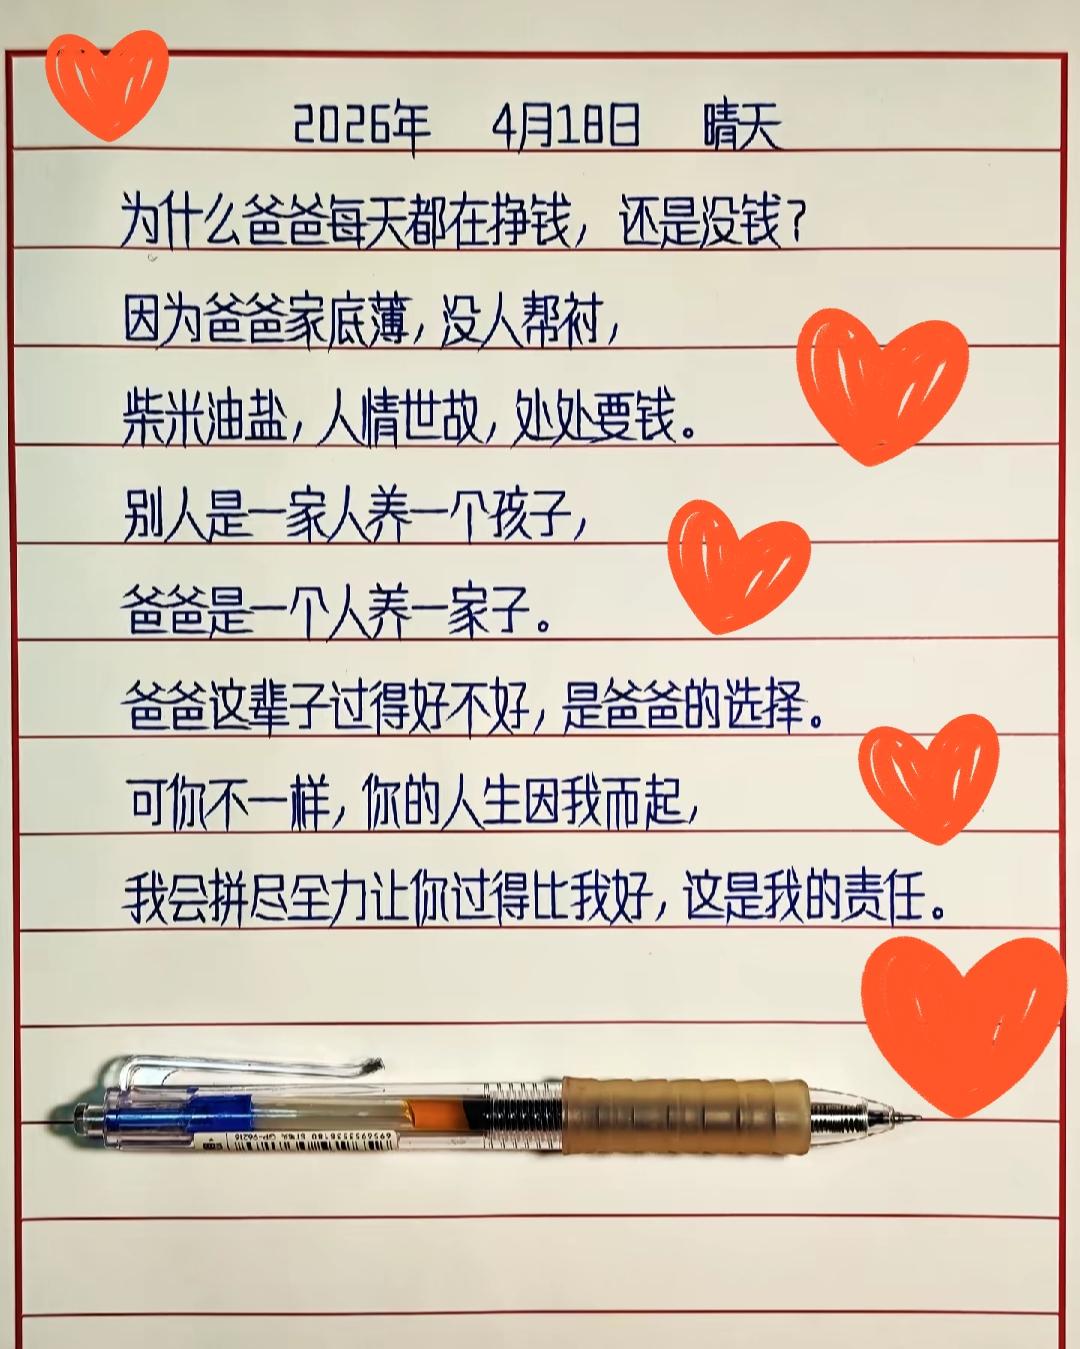 2026年 4月18日 晴天
为什么爸爸每天都在挣钱，还是没钱？
因为爸爸家底薄，没人帮衬，
柴米油盐，人情世故，处处要钱。
别人是一家人养一个孩子，
爸爸是一个人养一家子。
爸爸这辈子过得好不好，是爸爸的选择。
可你不一样，你的人生因我而起，
我会拼尽全力让你过得比我好，这是我的责任。